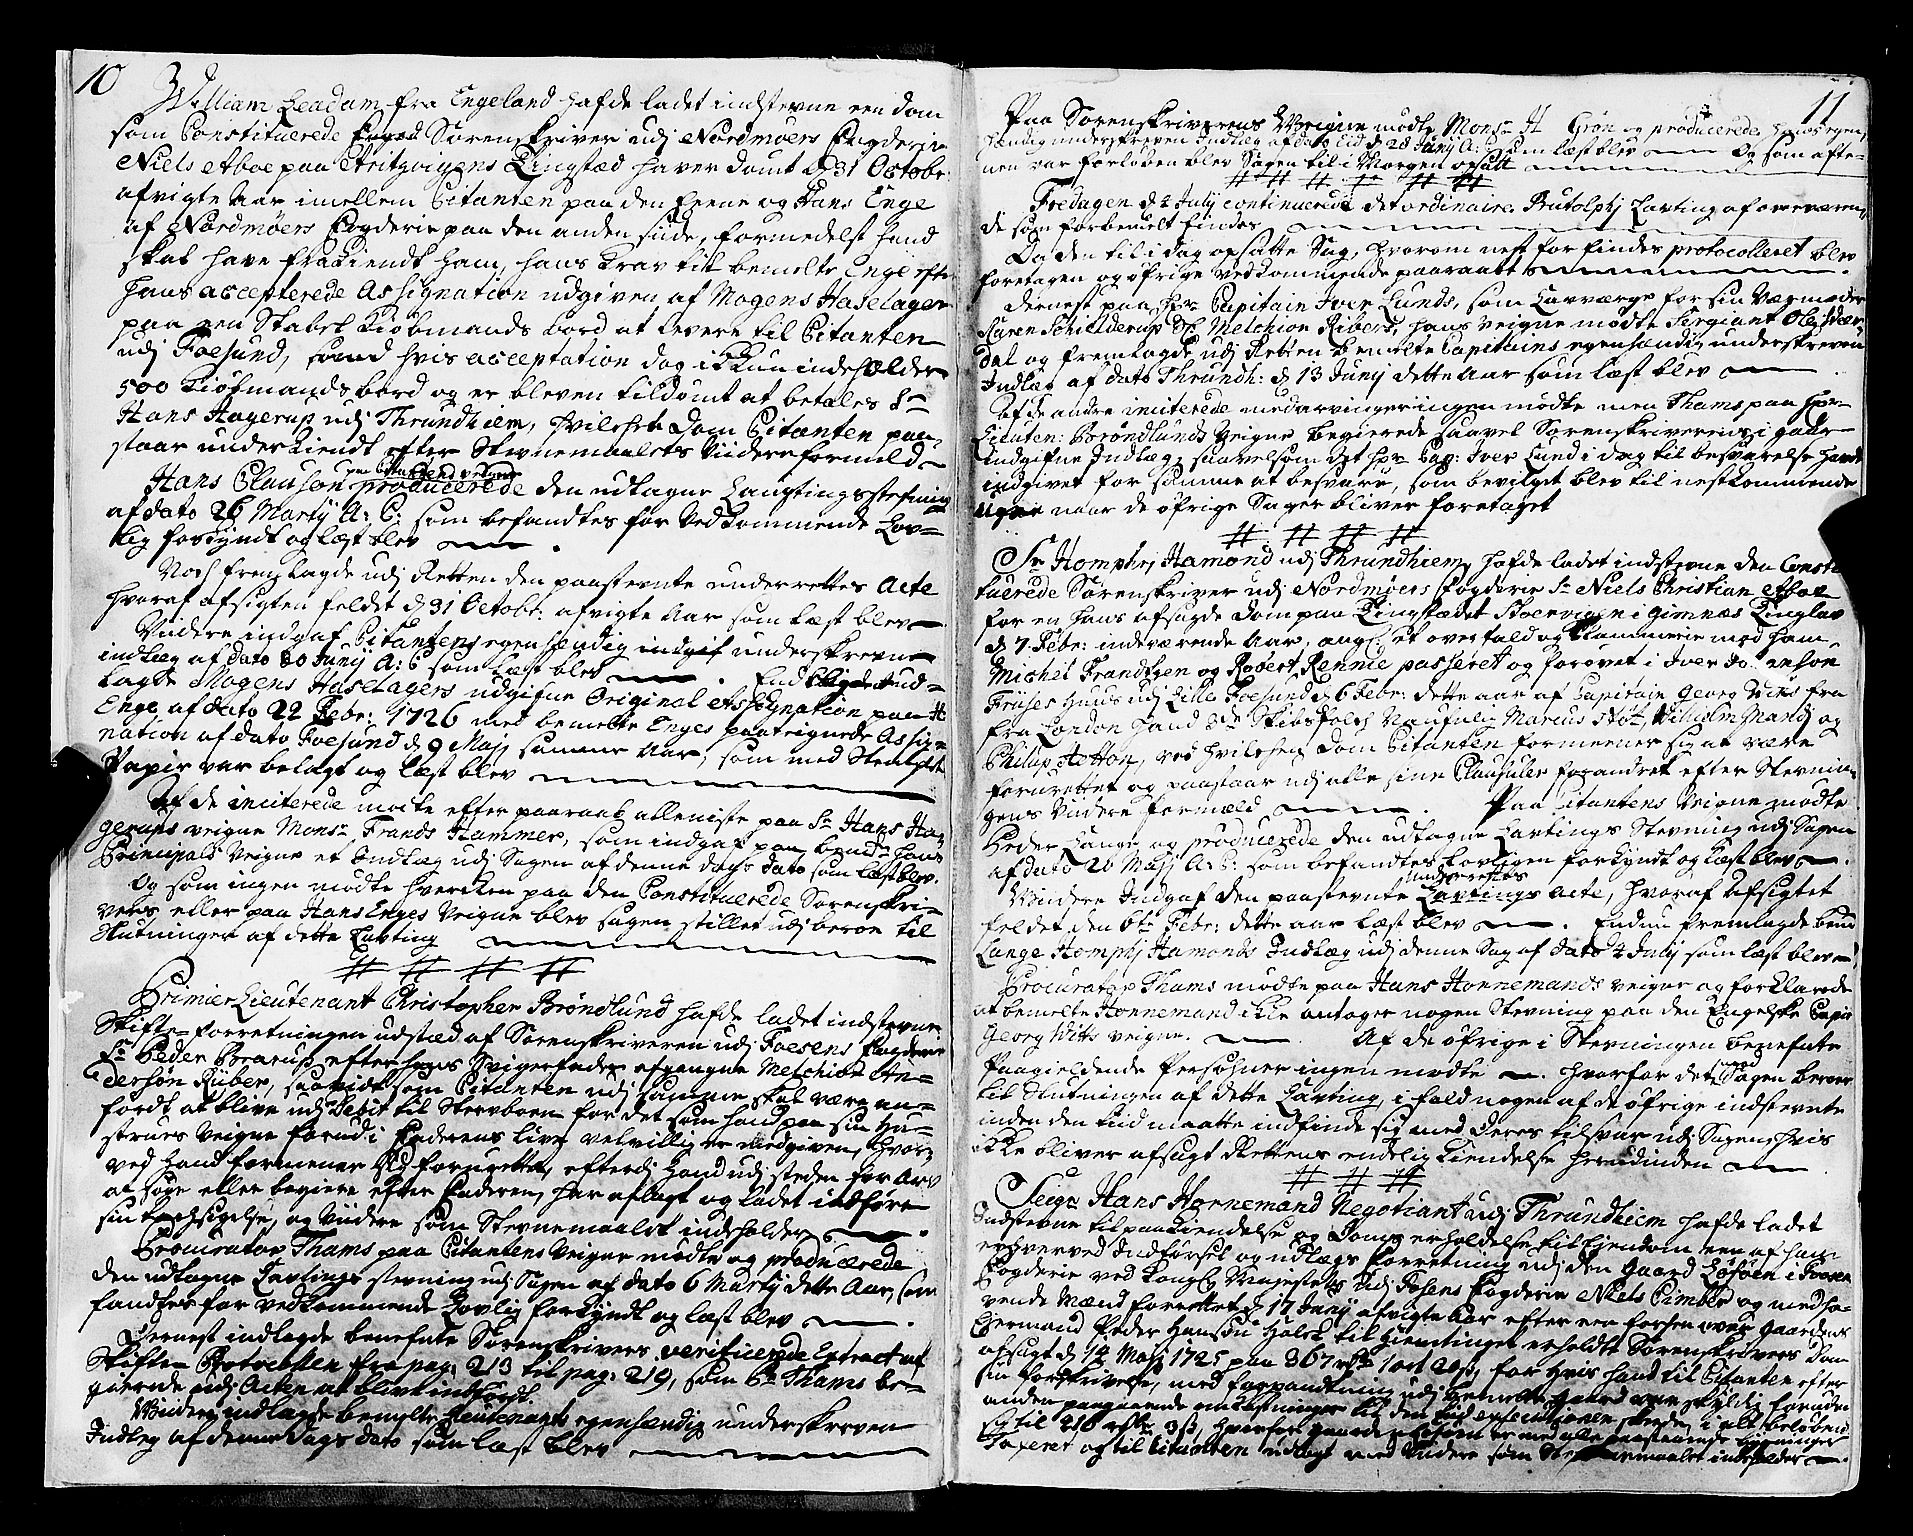 10
William Leadam fra Engeland hafde ladet indstevne een dom
som Constituerede Sorenskriver udj Nordmøers Fogderie
Niels Aboe paa Tingstæd haver dømt d 31 Octobr:
afvigte aar imellem Citanten paa den Eene og Hans Enge
af Nordmøers Fogderie paa den anden siide, formedelst hand
skal have frakiendt ham, hans Krav til bemelte Enge efter
hans accepterede Assignation udgiven af Mogens Haselager
paa een Stabel Kiøbmands bord at levere til Citanten
udj Foesund, hvis acceptation dog ikkun indeholder
500 Kiøbmands bord og er bleven tildømt at betales Sr
Hans Hagerup udj Thrundhiem, hvilchet Dom Citanten paa-
staar underkiendt efter Stevnemaalets Viidere formeld
Hans Clauson producerede den udtagne Laugtings stefning
af dato 26 Marty A: C: som befandtes for Vedkommende Lov-
lig forkyndt og læst blev
Noch fremlagde udj Retten den paastevnte underrettes Acte
hvoraf afsigten feldet d 31 Octobr: afvigte aar som læst blev
Viidere indgaf Citantens egenhændig underskrevne
indlæg af dato 20 Junij A: C som læst blev End
lagde Mogens Haselagers udgifne Original Assignation paa H
Enge af dato 22 Febr: 1726 med bemelte Enges paategnede Assig-
nation af dato Foesund d 9 Maj samme aar, som med Stemplet
Papir var belagt og læst blev
Af de inciterede mødte efter paaraab alleniste paa Sr Hans Ha-
gerups veigne Monsr Frands Hammer, som indgaf paa bemte hans
Principals Veigne et Indlæg udj Sagen af denne dags dato som læst blev.
Og som ingen mødte hvercken paa den Constituerede Sorenskri-
vers eller paa Hans Enges Veigne blev sagen stillet udj beroe til
Slutningen af dette Lavting
Primier Lieutenant Christopher Brøndlund hafde ladet indstevne
Skifte-forretningen udstæd af Sorenskriveren udj Foesens Fogderie
Sr Peder Brarup efter hans Svigerfader afgangne Melchior An-
dersøn Riiber, saavidt som Citanten udj samme skal være an-
fordt at blive udj Debit til Sterboen for det som hand paa sin Hu-
strues Veigne forud i Faderens live velvillig er medgiven, hvor-
ved hand formener sig forurettet, efterdj hand udj steden for Arv
at søge eller begiere efter Faderen, har aflagt og ladet indføre
sin fraesigelse, og Viidere som Stevnemaalet indeholder
Procurator Thams paa Citantens Veigne mødte og producerede
den udtagne Lavtings stevning udj Sagen af dato 6 Martij dette Aar, som
fandtes for vedkommende Lovlig forkyndt og læst blev
Dernest indlagde benefnte Sorenskrivers verificerede Extract af
Skifte Protocollen fra pag: 213 til pag: 219, som Thams be-
gierede udj Acten at blive indført.
Viidere indlagde bemelte Lieutenants egenhændig underskreven
Indleg af denne dags dato som læst blev
11
Paa Sorenskriverens Veigne mødte Monsr H Grøn og producerede hans egen-
hændig underskreven Indlæg af dato d 28 Junij A: C som læst blev Og som afte-
nen var forløben blev Sagen til i Morgen opsatt
Fredagen d 2 Julij continuerede det ordinaire Lavting af overværen-
de som forbemelt findes
Da den til i dag opsatte Sag, hvorom nest for findes protocolleret blev
foretagen og øfrige vedkommende paaraabt
Dernest paa Hr: Capitain Iver Lunds, som Lavværge for sin Værmoder
Karen Schielderup Sl Melchior Ribers, hans veigne mødte Sergiant Ole
dal og fremlagde udj Retten bemelte Capitains egenhændig underskreven
Indlæg af dato Thrundh: d 13 Junij dette Aar som læst blev
Af de andre inciterede medarvinger ingen mødte men Thams paa Hr
Lieuten: Brøndlunds Veigne begierede saavel Sorenskriverens i gaar
indgifne Indlæg, saavelsom det Hr Cap: Iver Lund i dag til besvarelse havde
indgivet for samme at besvare, som bevilget blev til nestkommende
Uge naar de øfrige Sager bliver foretaget
Sr Homphrj Hamond udj Thrundhiem, hafde ladet indstevne den Consti-
tuerede Sorenskriver udj Nordmøers Fogderie Sr Niels Christian Aboe
for en hans afsagde dom paa Tingstædet Stoervigen i Gimnes Tinglav
d 7 Febr: indeværende aar, ang: et overfald og Klammerie mod ham
Michel Frandtzen og Robert Rennie passeret og forøvet i Iver
Friises huus udj Lille Foesund d 6 Febr: dette aar af Capitain Georg Witts fra
fra London hand 3de Skibsfolch Marcus Wilhelm og
Philip Hotton, ved hvilchen dom Citanten formeener sig at være
forurettet og paastaar udj alle sine Clausuler forandret efter Stevnin-
gens Viidere formæld Paa Citantens Veigne mødte
Peder Lange og producerede den udtagne Lavtings Stevning udj Sagen
af dato 26 Maj A: C: som befandtes Lovligen forkyndt og læst blev
Viidere Indgaf den paastevnte underrettes Acte, hvoraf afsigtet
feldet den 6te Febr: dette aar læst blev Endnu fremlagde bemte
Lange Homphj Hamonds Indlæg udj denne Sag af dato 2 Julij som læst blev
Procurator Thams mødte paa Hans Hornemands veigne og forklarede
at bemelte Hornemand ikke antager nogen Stevning paa den Engelske Capit
Georg Witts veigne. Af de øfrige i Stevningen benefnte
Paagieldende Persohner ingen mødte hvorfor det Sagen beroer
til Slutningen af dette Lavting, i fald nogen af de øfrige indstevnte
inden den tiid maatte indfinde sig med deres tilsvar udj Sagen, hvis
ikke bliver afsagt Rettens endelig Kiendelse herudinden
Seigr Hans Hornemand Negotiant udj Thrundhiem hafde ladet
Indstevne til paakiendelse og Doms erholdelse til Eiendom een af ham
erhverved Indførsel og udlægs forretning udj den gaard i Foesen
Fogderie ved Kongl Majestets udj Fosens Fogderie Niels og medhа-
vende Mænd forrettet d 17 Junij afvigte Aar efter een forhen over gaardens
Eiermand Peder Hansøn til Hiemtinget erholdt Sorenskrivers Dom
afsagt d 14 Maj 1725 paa 367 rdr 1 ort 20 s, for hvis hand til Citanten efter
sin forskrivelse, med forpandtning udj bemelte gaard var skyldig foruden
anden paagaaende omkostninger til den tiid executionen skeede, i alt beløbend
sig til 216 rdr 3 s, hvorfor gaarden
Taxeret og til Citanten udlagt med Viidere som Stevnemaalet indeholder